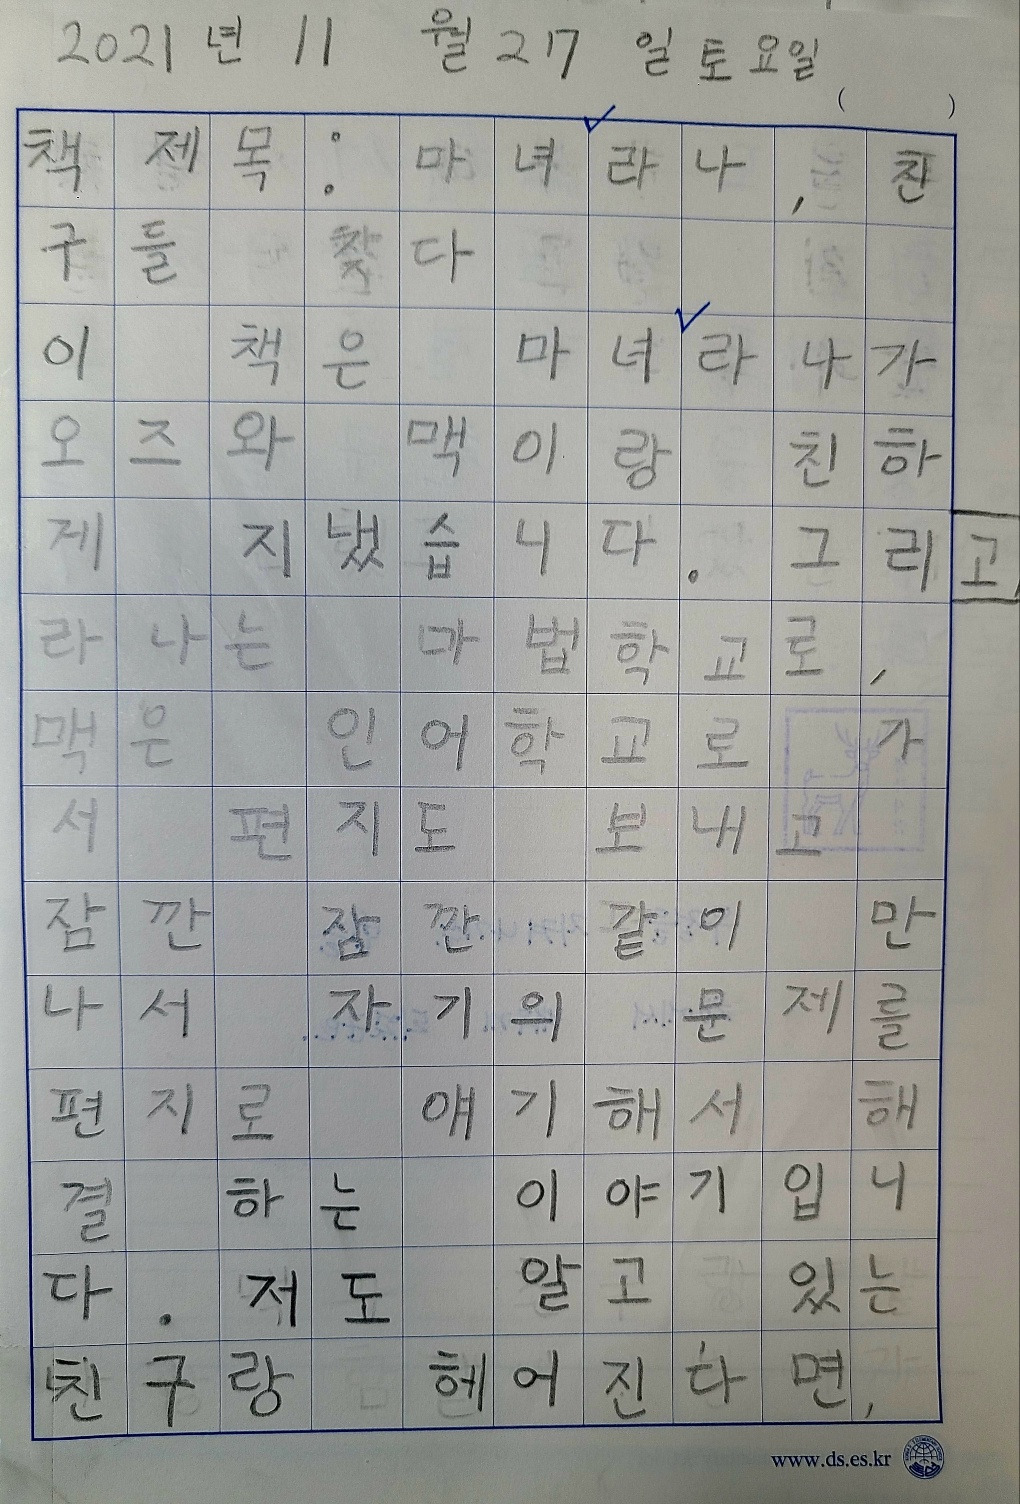 2021년 11월 27일 토요일
( )
책 제목: 마녀라나, 친
구들 찾다
이 책은 마녀라나가
오즈와 맥이랑 친하
게 지냈습니다. 그리고
라나는 마법학교로,
맥은 인어학교로 가
서 편지도 보내고
잠깐 잠깐 같이 만
나서 자기의 문제를
편지로 얘기해서 해
결 하는 이야기입니
다. 저도 알고 있는
친구랑 헤어진다면,
www.ds.es.kr